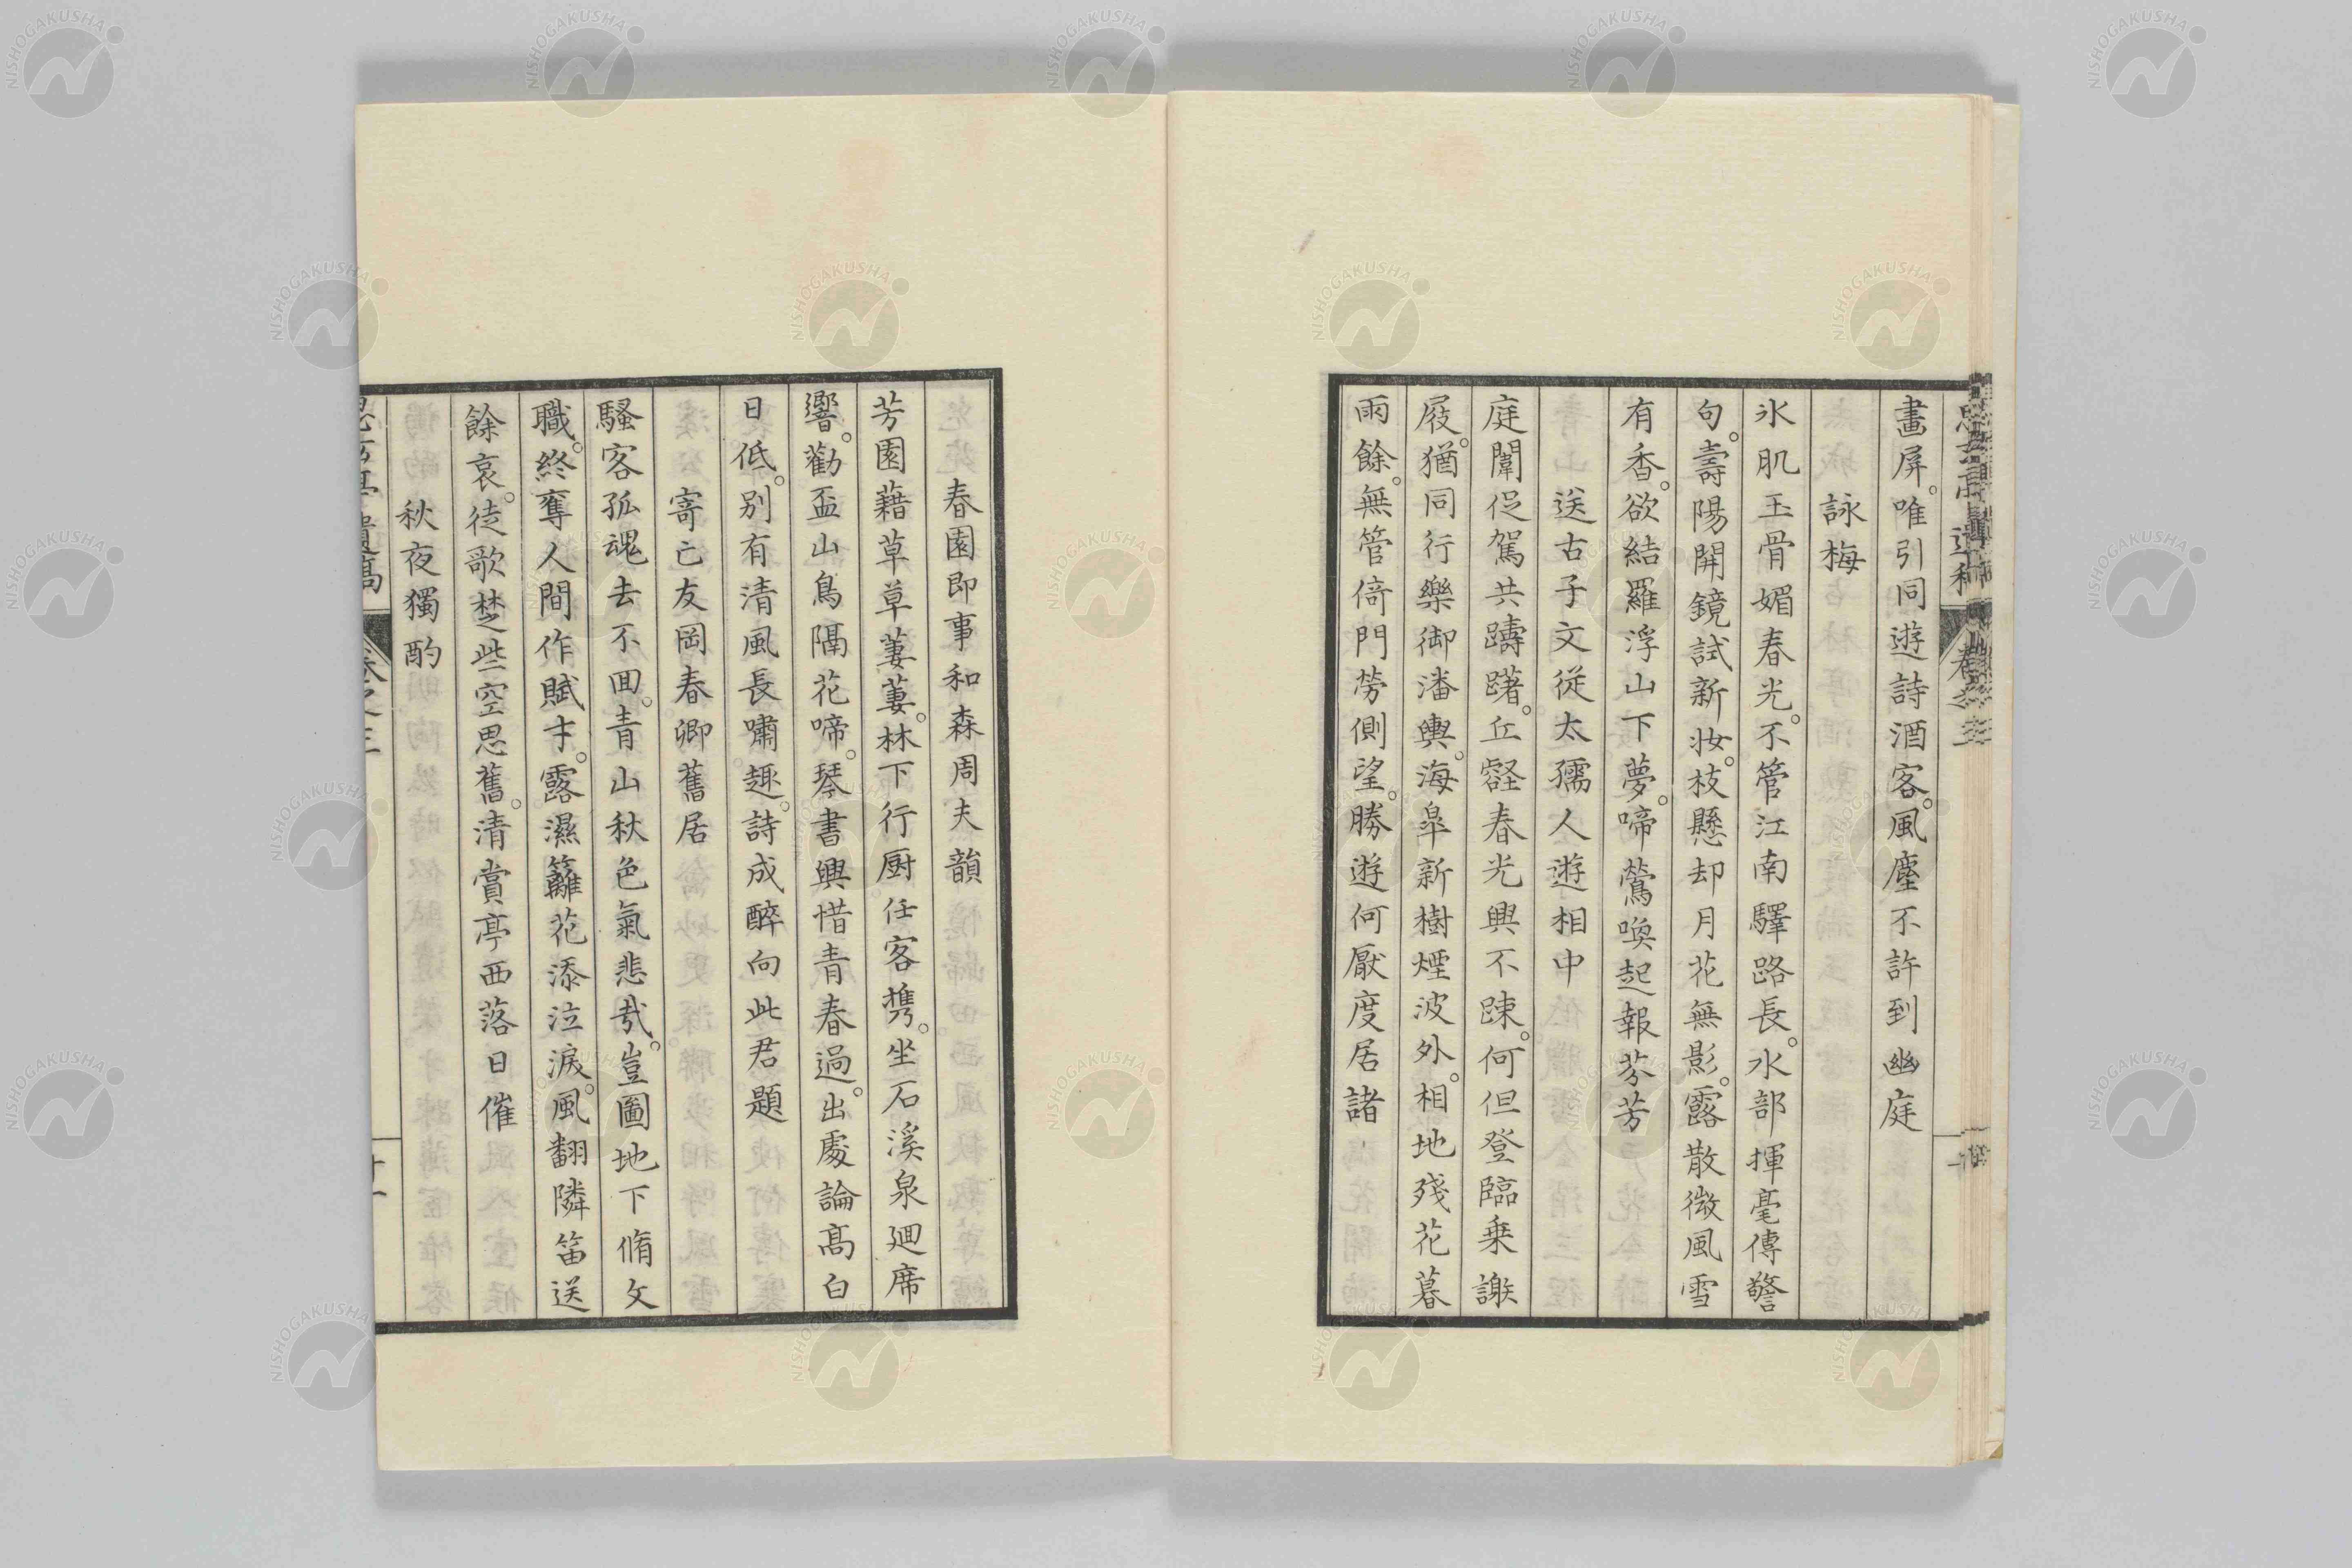 畫屏。唯引同遊詩酒客。風塵不許到幽庭
詠梅
氷肌玉骨媚春光。不管江南驛路長。水部揮毫傳警
句。壽陽開鏡試新妝。枝懸却月花無影。露散微風雪
有香。欲結羅浮山下夢。啼鶯喚起報芬芳
送古子文從太孺人遊相中
庭闈促駕共躊躇。丘壑春光興不踈。何但登臨乗謝
屐。猶同行樂御潘輿。海皐新樹煙波外。相地殘花暮
雨餘。無管倚門勞側望。勝遊何厭度居諸
春園即事和森周夫韻
芳園藉草草萋萋。林下行厨任客携。坐石溪泉廻席
響。勸盃山鳥隔花啼。琴書興惜青春過。出處論髙白
日低。別有清風長嘯趣。詩成醉向此君題
寄亡友岡春卿舊居
騷客孤魂去不回。青山秋色氣悲哉。豈圖地下脩文
職。終奪人間作賦才。露濕籬花添泣淚。風翻隣笛送
餘哀。徒歌楚些空思舊。清賞亭西落日催
秋夜獨酌
卷之三
NISHOGAKUSHA